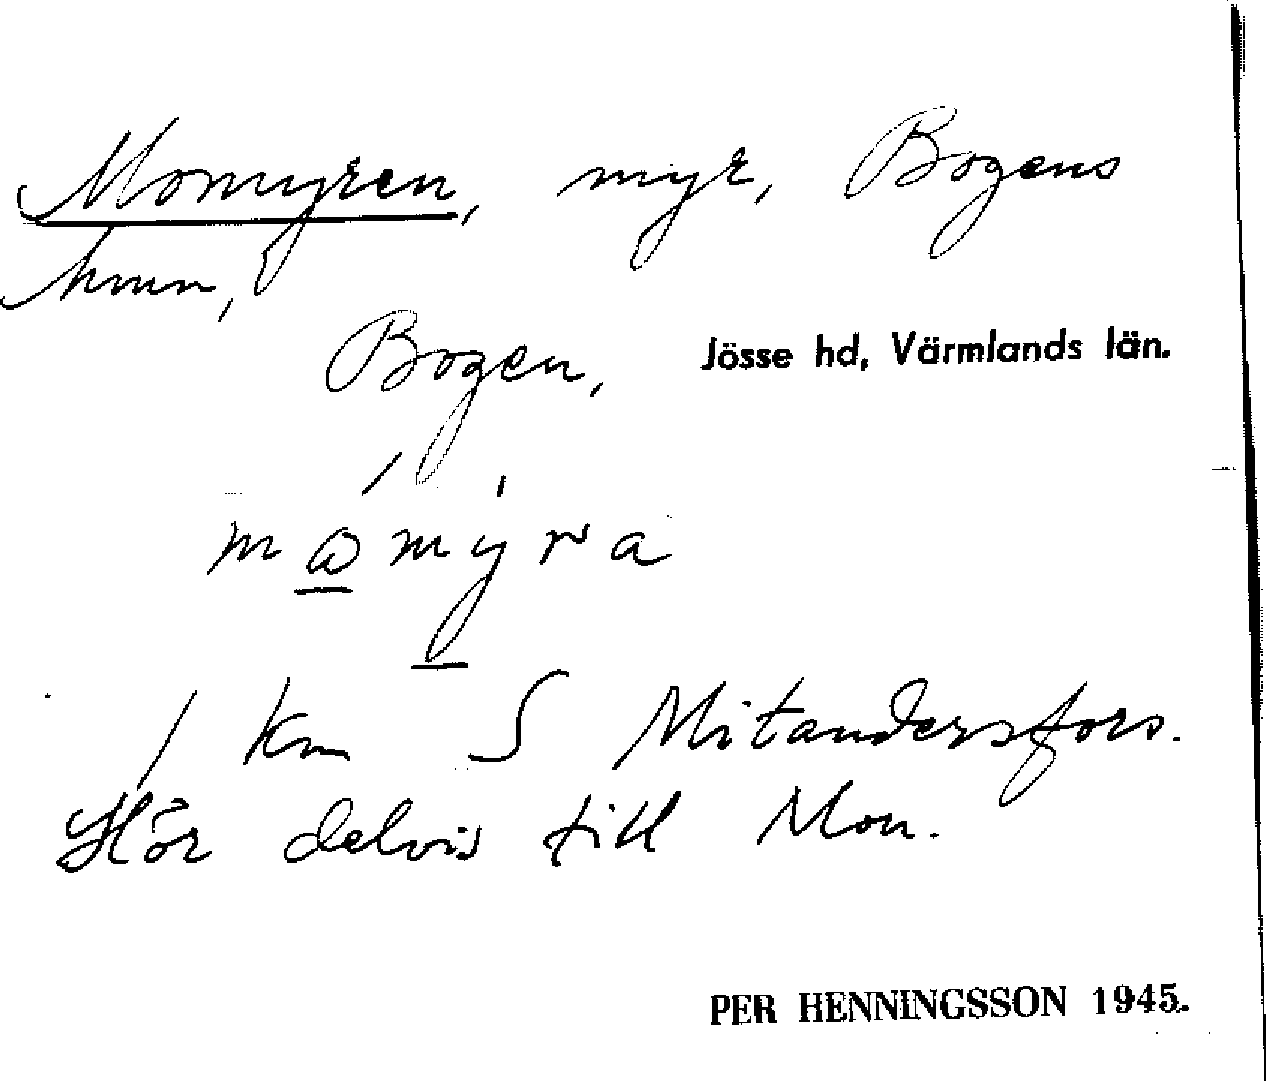 Momyren, myr, Bogens
hmn,
Bogen, Jösse hd, Värmlands län.
1 km S Mitandersfors.
Hör delvis till Mon.
PER HENNINGSSON 1945.